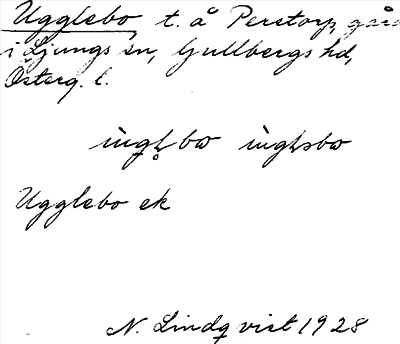 Ugglebo, t. å Perstorp, gård
i Ljungs sn, Gullbergs hd,
Österg. l.
Ugglebo ek
N. Lindqvist 1928